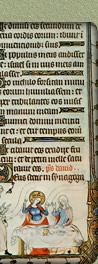 omnia eis secundum
ria cordis eorum: ibunt i
inuencionibus suis
i populus meus audisset
e: israel si in uiis meis am
lasset
ro nichilo forsitan inim
eorum humiliassem: et
per tribulantes eos misiss
um meam
nimici domini mentiti
unt ei: et erit tempus eorum
n secula
t cibauit eos ex adipe fru
ti: et de petra melle satu
rauit eos. ps dauid
Deus stetit in synagoga